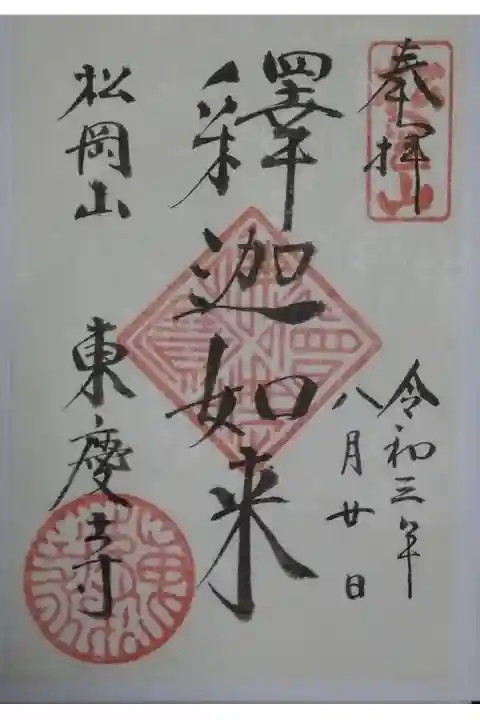 奉拝
令和三年
八月廿日
釋迦如来
松岡山 東慶寺